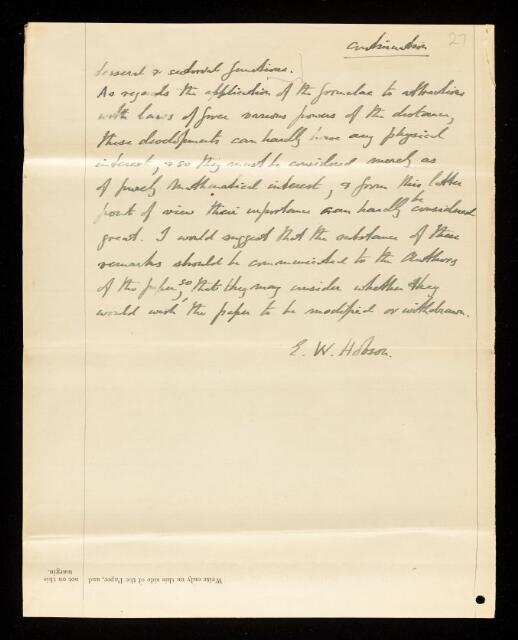 27
continuation
tesseral & sectorial functions.
As regards the application of the formulae to attractions
with laws of force various powers of the distance,
these developments can hardly have any physical
interest, & so they must be considered merely as
of purely mathematical interest, & from this latter
point of view their importance can hardly be considered
great. I would suggest that the substance of these
remarks should be communicated to the Authors
of the paper, so that they may consider whether they
would wish the paper to be modified or withdrawn.
E. W. Hobson.
Write only on this side of the Paper, and not on this
margin.